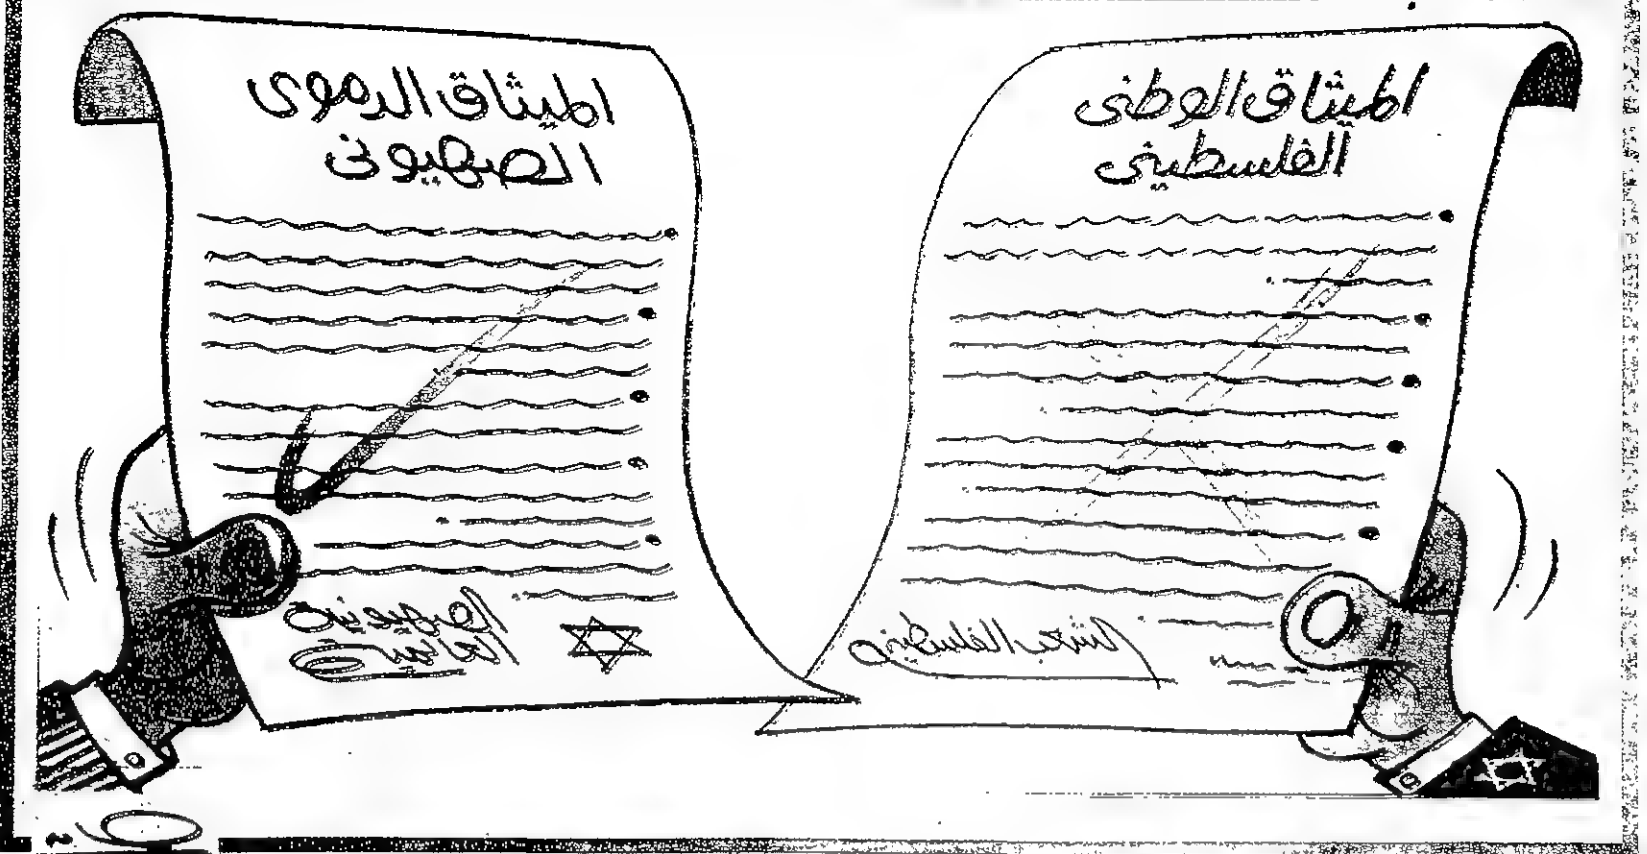 الميثاق الوطنى
الفلسطينى
الميثاق الدموى
الصهيونى
الصهيونية
العالمية